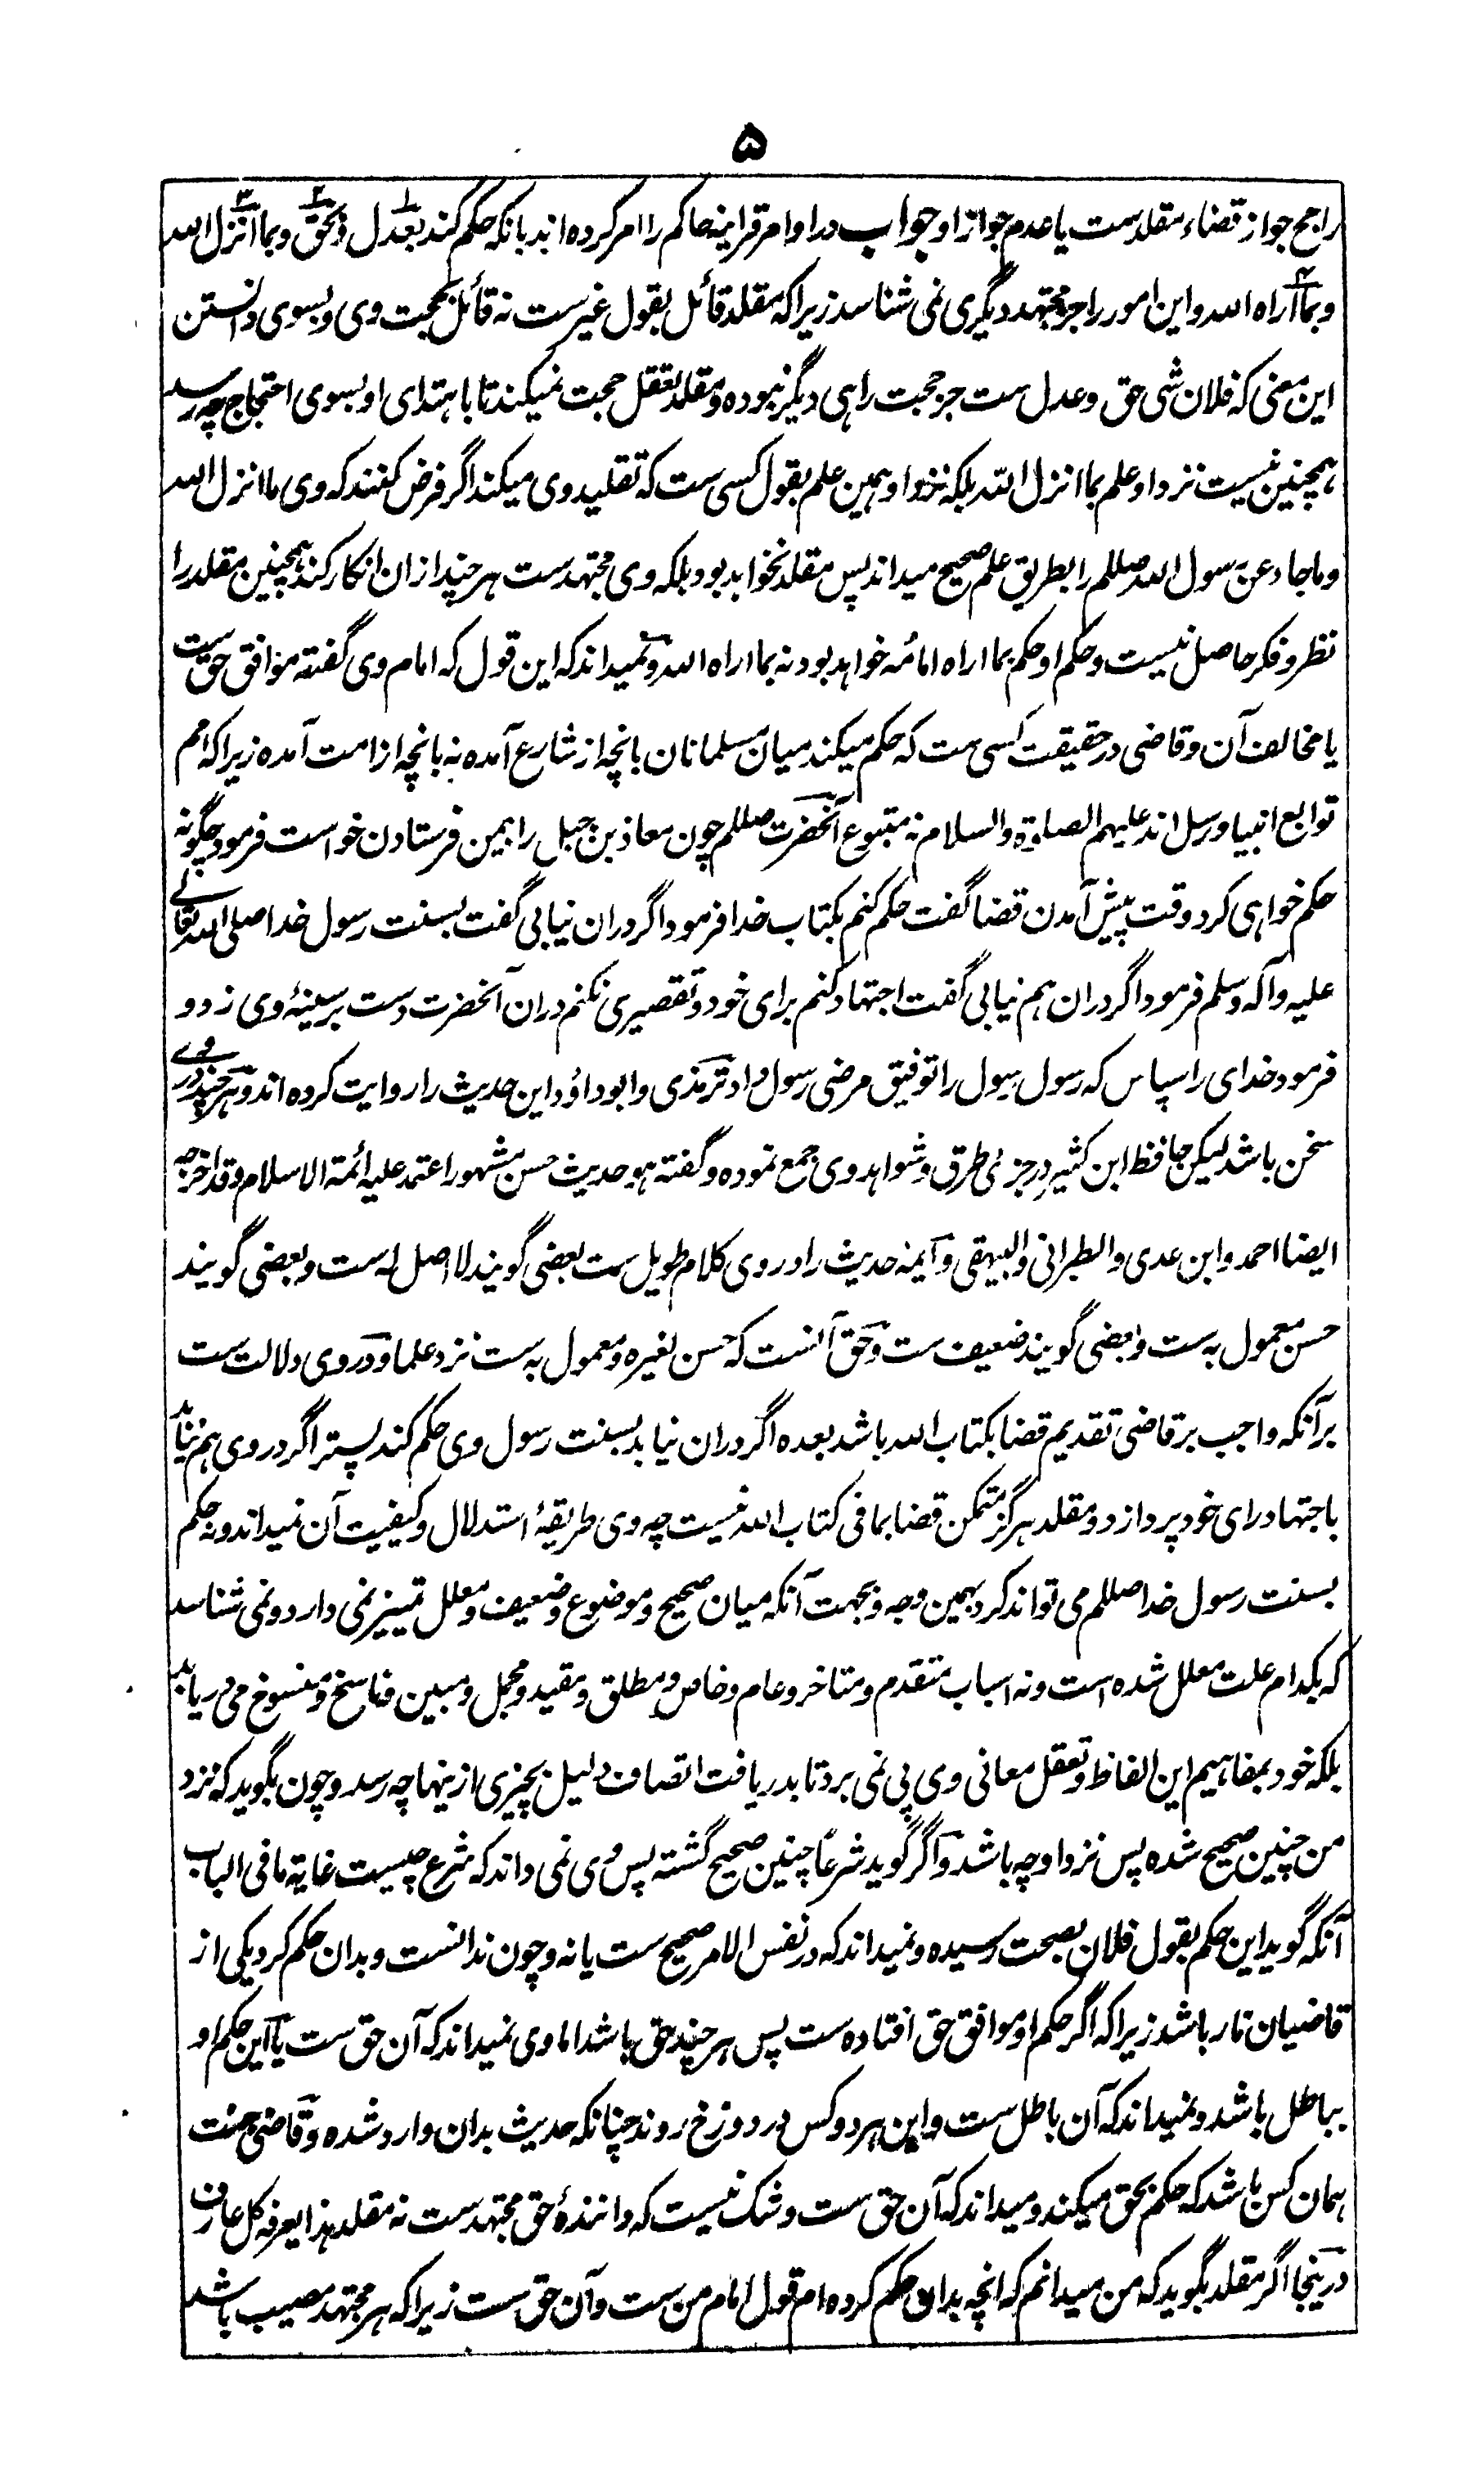 ۵
راجح جواز قضاء مقلدست یا عدم جواز او جواب در اوامر قرآنیه حاکم را امر کرده اند بانکه حکم کند بعدل و بحق و بما انزل الله
و بما اراه الله و این امور را جز مجتهد دیگری نمی شناسد زیرا که مقلد قائل بقول غیرست نه قائل بحجت وی و بسوی دانستن
این معنی که فلان شی حق و عدل ست جز حجت راهی دیگر نبوده و مقلد تعقل حجت نمیکند تا باهتدای او بسوی احتجاج چه رسد
همچنین نیست نزد او علم بما انزل الله بلکه نزد او همین علم بقول کسی ست که تقلید وی میکند اگر فرض کنند که وی ما انزل الله
و ما جاء عن رسول الله صللم را بطریق علم صحیح میداند پس مقلد نخواهد بود بلکه وی مجتهدست هر چند ازان انکار کند همچنین مقلد را
نظر و فکر حاصل نیست و حکم او حکم بما اراه امامه خواهد بود نه بما اراه الله و نمیداند که این قول که امام وی گفته موافق حق ست
یا مخالف آن و قاضی در حقیقت کسی ست که حکم میکند میان مسلمانان بانچه از شارع آمده نه بانچه از امت آمده زیرا که امم
توابع انبیا و رسل اند علیهم الصلوة والسلام نه متبوع آنحضرت صللم چون معاذ بن جبل را بیمن فرستادن خواست فرمود چگونه
حکم خواهی کرد وقت پیش آمدن قضا گفت حکم کنم بکتاب خدا فرمود اگر دران نیابی گفت بسنت رسول خدا صلی الله تعالی
علیه وآله وسلم فرمود اگر دران هم نیابی گفت اجتهاد کنم برای خود و تقصیری نکنم دران آنحضرت دست بر سینهٔ وی زد و
فرمود خدای را سپاس که رسول رسول را توفیق مرضی رسول داد ترمذی و ابو داؤد این حدیث را روایت کرده اند و هر چند در وی
سخن باشد لیکن حافظ ابن کثیر در جزئی طرق و شواهد وی جمع نموده و گفته هو حدیث حسن مشهور اعتمد علیه ائمة الاسلام و قد اخرجه
ایضا احمد و ابن عدی و الطبرانی و البیهقی و ایمهٔ حدیث را در وی کلام طویل ست بعضی گویند لا اصل له ست و بعضی گویند
حسن معمول به ست و بعضی گویند ضعیف ست و حق آنست که حسن لغیره و معمول به ست نزد علما و در وی دلالت ست
برآنکه واجب بر قاضی تقدیم قضا بکتاب الله باشد بعده اگر دران نیابد بسنت رسول وی حکم کند پستر اگر در وی هم نیابد
باجتهاد رای خود پردازد و مقلد هرگز متمکن قضا بما فی کتاب الله نیست چه وی طریقهٔ استدلال و کیفیت آن نمیداند و نه حکم
بسنت رسول خدا صللم می تواند کرد بهمین وجه و بجهت آنکه میان صحیح و موضوع و ضعیف و معلل تمییز نمی دارد و نمی شناسد
که بکدام علت معلل شده است و نه اسباب متقدم و متاخر و عام و خاص و مطلق و مقید و مجمل و مبین و ناسخ و منسوخ می دریابد
بلکه خود بمفاهیم این الفاظ و تعقل معانی وی پی نمی برد تا بدریافت اتصاف دلیل بچیزی ازینها چه رسد و چون بگوید که نزد
من چنین صحیح شده پس نزد او چه باشد و اگر گوید شرعاً چنین صحیح گشته پس وی نمی داند که شرع چیست غایة ما فی الباب
آنکه گوید این حکم بقول فلان بصحت رسیده و نمیداند که در نفس الامر صحیح ست یا نه و چون ندانست و بدان حکم کرد یکی از
قاضیان نار باشد زیرا که اگر حکم او موافق حق افتاده ست پس هر چند حق باشد اما وی نمیداند که آن حق ست یا این حکم او
بباطل باشد و نمیداند که آن باطل ست و این هر دو کس در دوزخ روند چنانکه حدیث بدان وارد شده و قاضی جنت
همان کس باشد که حکم بحق میکند و میداند که آن حق ست و شک نیست که دانندهٔ حق مجتهدست نه مقلد هذا یعرفه کل عارف
درینجا اگر مقلد بگوید که من میدانم که انچه بدان حکم کرده ام قول امام من ست و آن حق ست زیرا که هر مجتهد مصیب باشد